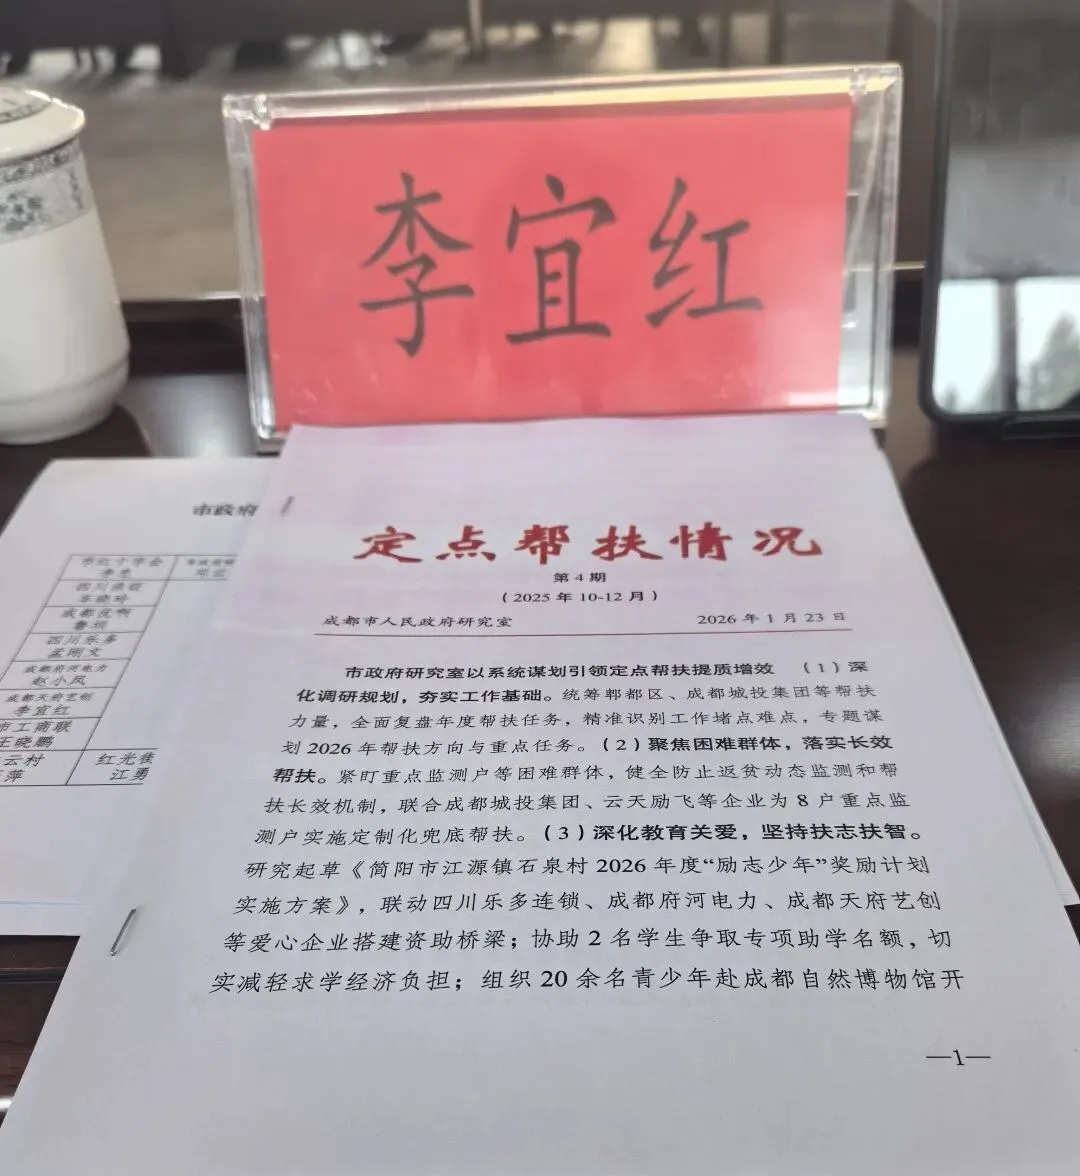 李宜红
定点帮扶情况
第 4 期
（2025 年 10-12 月）
成都市人民政府研究室 2026 年 1 月 23 日
市政府研究室以系统谋划引领定点帮扶提质增效 （1）深
化调研规划，夯实工作基础。统筹郫都区、成都城投集团等帮扶
力量，全面复盘年度帮扶任务，精准识别工作堵点难点，专题谋
划 2026 年帮扶方向与重点任务。（2）聚焦困难群体，落实长效
帮扶。紧盯重点监测户等困难群体，健全防止返贫动态监测和帮
扶长效机制，联合成都城投集团、云天励飞等企业为 8 户重点监
测户实施定制化兜底帮扶。（3）深化教育关爱，坚持扶志扶智。
研究起草《简阳市江源镇石泉村 2026 年度“励志少年”奖励计划
实施方案》，联动四川乐多连锁、成都府河电力、成都天府艺创
等爱心企业搭建资助桥梁；协助 2 名学生争取专项助学名额，切
实减轻求学经济负担；组织 20 余名青少年赴成都自然博物馆开
—1—
市政府
市红十字会
四川
成都
四川乐多
孟刚文
成都府河电力
赵小凤
成都天府艺创
李宜红
市工商联
王晓鹏
云村 红光
萍 江勇